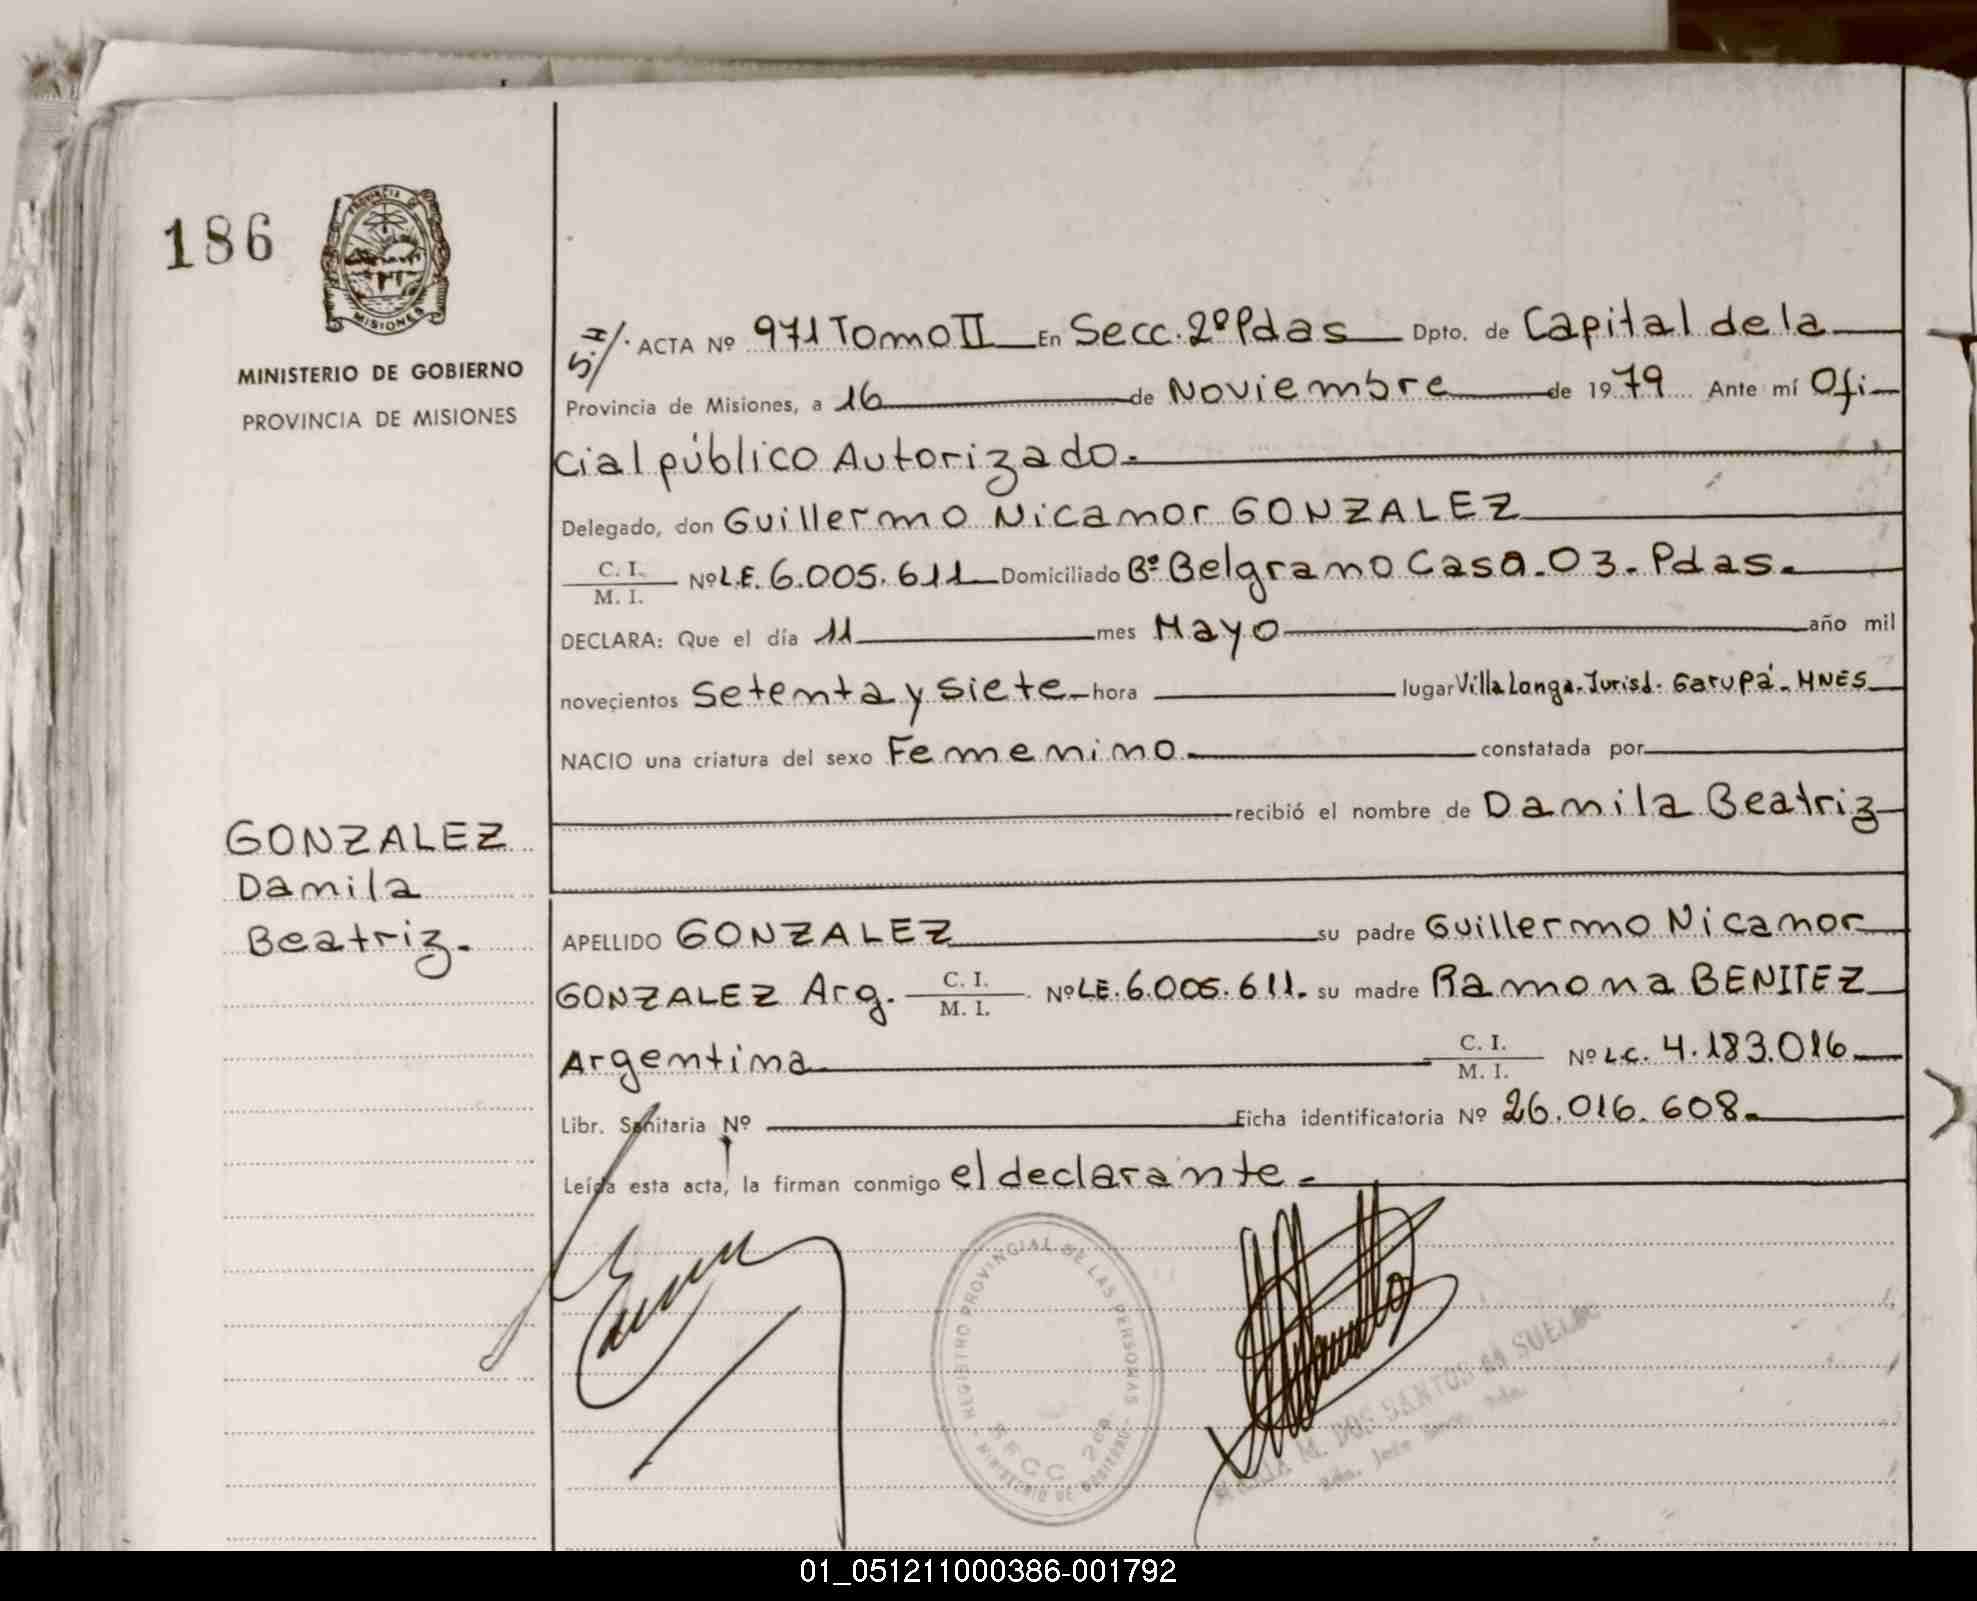 186
PROVINCIA DE
MISIONES
MINISTERIO DE GOBIERNO
PROVINCIA DE MISIONES
ACTA Nº 971 Tomo II En Secc. 2º Pdas Dpto. de Capital de la
Provincia de Misiones, a 16 de Noviembre de 1979 Ante mí Ofi
cial público Autorizado.
Delegado, don Guillermo Nicanor GONZALEZ
C. I.
M. I.
Nº L.E. 6.005.611 Domiciliado Bº Belgrano Casa. 03 - Pdas.
DECLARA: Que el día 11 mes Mayo año mil
novecientos Setenta y siete hora lugar Villa Longa - Jurisd. Garupá - MNES
NACIO una criatura del sexo Femenino. constatada por
recibió el nombre de Danila Beatriz
GONZALEZ
Danila
Beatriz.
APELLIDO GONZALEZ su padre Guillermo Nicanor
GONZALEZ Arg. C. I. M. I. Nº LE. 6.005.611. su madre Ramona BENITEZ
Argentina C. I. M. I. Nº L.C. 4.183.016
Libr. Sanitaria Nº Ficha identificatoria Nº 26.016.608.
Leída esta acta, la firman conmigo el declarante.
REGISTRO PROVINCIAL DE LAS PERSONAS
SECC 2da
MINISTERIO DE GOBIERNO
M. DOS SANTOS de SUELDO
01_051211000386-001792